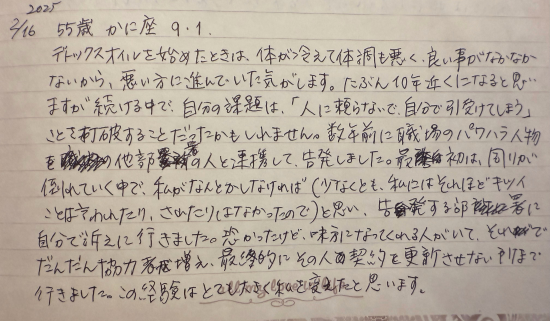 2025
2/16 55歳 かに座 9.1.
デトックスオイルを始めたときは、体が冷えて体調も悪く、良い事がなかなか
ないから、悪い方に進んでいた気がします。たぶん10年近くになると思い
ますが続ける中で、自分の課題は、「人に頼らないで、自分で引受けてしまう」
ことを打破することだったかもしれません。数年前に職場のパワハラ人物
を他部署の人と連携して、告発しました。最初は、周りが
倒れていく中で、私がなんとかしなければ(少なくとも、私にはそれほどキツイ
ことは言われたり、されたりはなかったので)と思い、告発する部署に
自分で訴えに行きました。恐かったけど、味方になってくれる人がいて、それまで
だんだん協力者も増え、最終的にその人の契約を更新させない所まで
行きました。この経験はとても大きく私を変えたと思います。